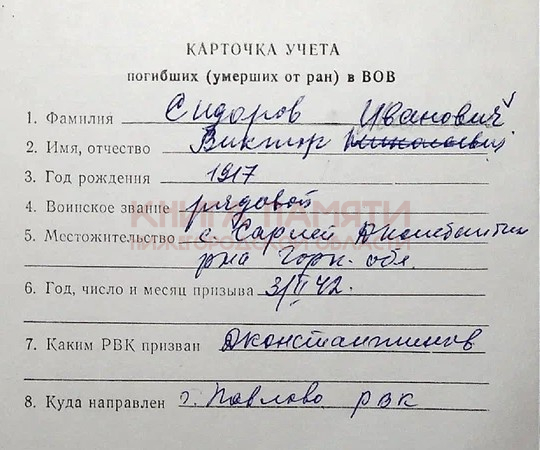 КАРТОЧКА УЧЕТА
погибших (умерших от ран) в ВОВ
1. Фамилия Сидоров Иванович
2. Имя, отчество Виктор Николаевич
3. Год рождения 1917
4. Воинское звание рядовой
КНИГА ПАМЯТИ
НИЖЕГОРОДСКОЙ ОБЛАСТИ
5. Местожительство с. Сарлей
р-на Горьк. обл.
6. Год, число и месяц призыва 3/II 42.
7. Каким РВК призван Дконстантинов
8. Куда направлен г. Павлово РВК